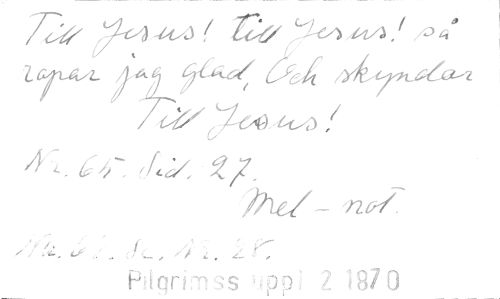 Till Jesus! till Jesus! så
ropar jag glad, Och skyndar
Till Jesus!
Nr. 65. Sid. 27.
Mel-not.
Nr. 28.
Pilgrimss uppl 2 1870